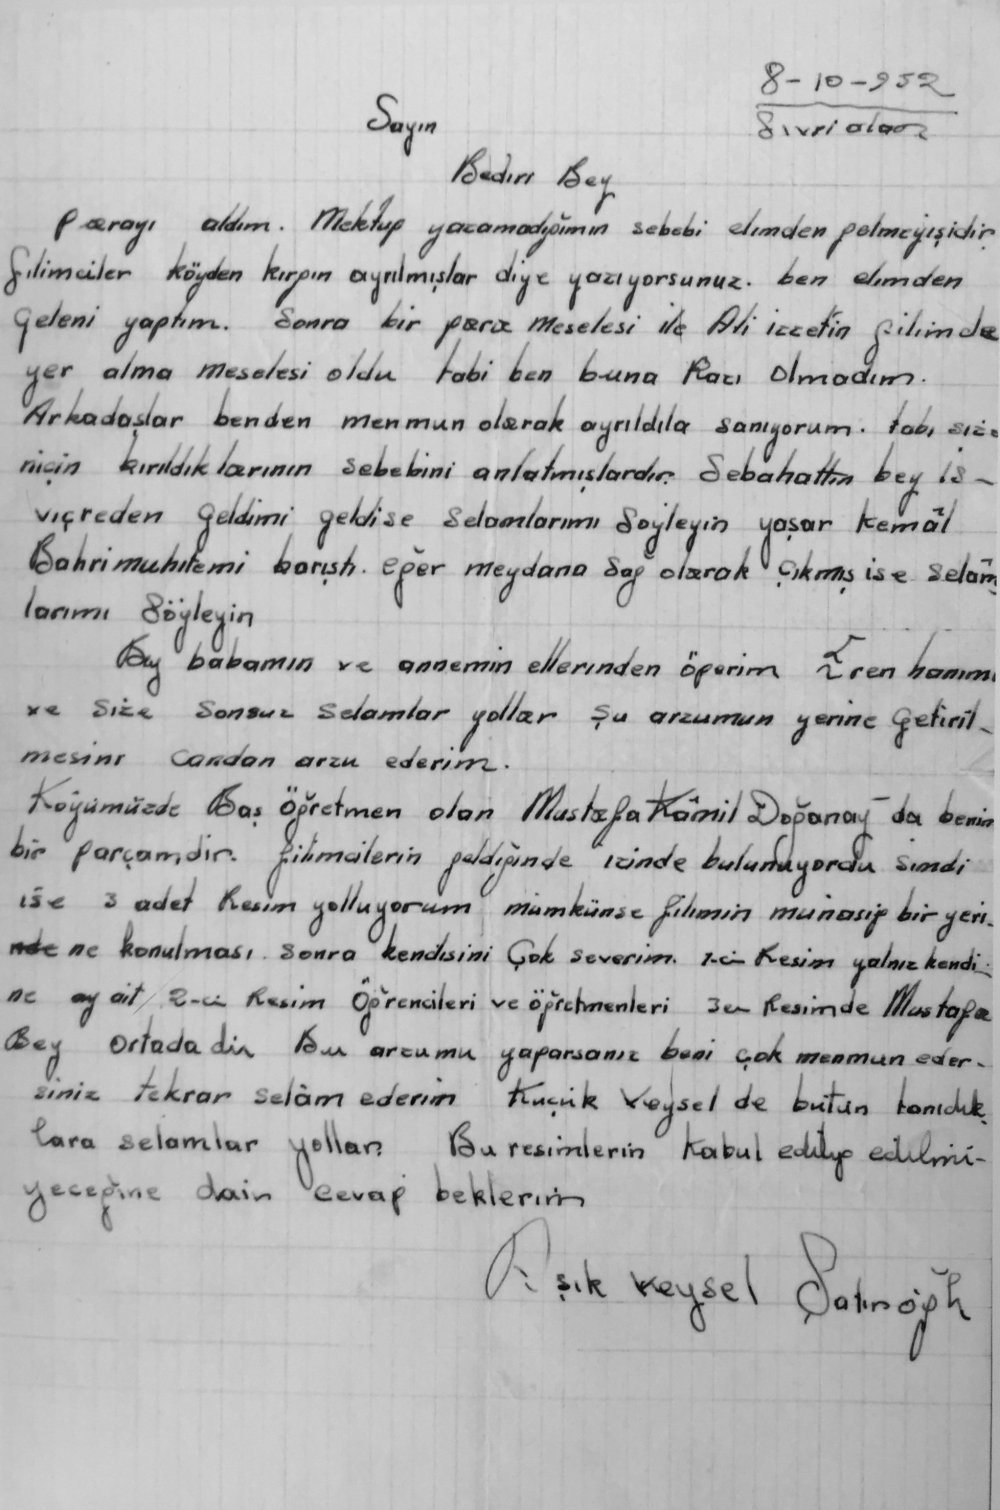 8-10-952
Sivrialan
Sayın
Bedıri Bey
parayı aldım. Mektup yazamadığımın sebebi elımden gelmeyişidir
filimciler köyden kırgın ayrılmışlar diye yazıyorsunuz. ben elımden
geleni yaptım. Sonra bir para meselesi ile Ali izzetin filimde
yer alma meselesi oldu tabi ben buna Razı olmadım.
Arkadaşlar benden memnun olarak ayrıldıla sanıyorum. tabı size
niçin kırıldıklarının sebebini anlatmışlardır. Sebahattın bey is-
viçreden geldimi geldise selamlarımı söyleyin yaşar kemâl
Bahrimuhıtemi barıştı. eğer meydana sağ olarak çıkmış ise selâm
larımı söyleyin
Bey babamın ve annemin ellerınden öperim Eren hanıma
ve size sonsuz selamlar yollar şu arzumun yerine getiril-
mesinı candan arzu ederim.
Köyümüzde Baş öğretmen olan Mustafa Kâmil Doğanay da benim
bir parçamdir. filimcilerin geldiğinde izinde bulunuyordu simdi
ise 3 adet Resim yolluyorum mümkünse filımin münasip bir yeri-
nde ne konulması. sonra kendisini çok severim. 1-ci Resim yalnız kendi-
ne ay ait 2-ci Resim öğrencileri ve öğretmenleri 3cu Resimde Mustafa
Bey ortada dır Bu arzumu yaparsanız beni çok memnun eder-
siniz tekrar selâm ederim Küçük Veysel de bütün tanıdık
lara selamlar yollar. Bu resimlerin kabul edilip edilmi-
yeceğine dair cevap beklerım
Aşık Veysel Şatıroğlu